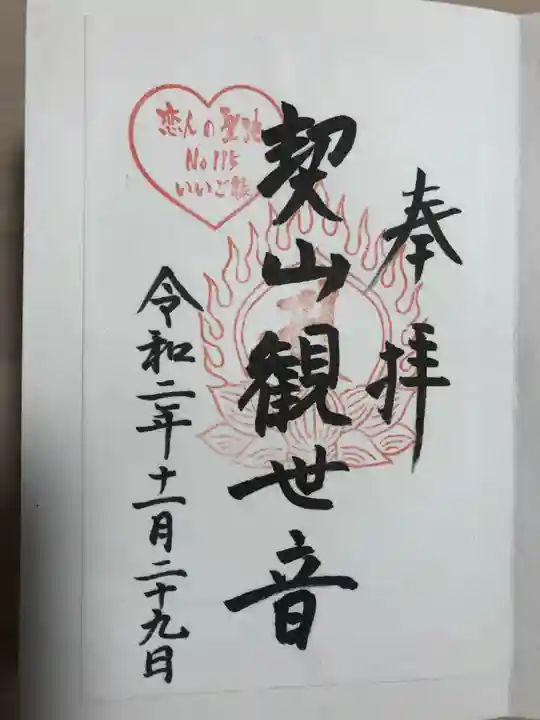 奉拝
契山観世音
令和二年十一月二十九日
恋人の聖地
No 115
いいご縁